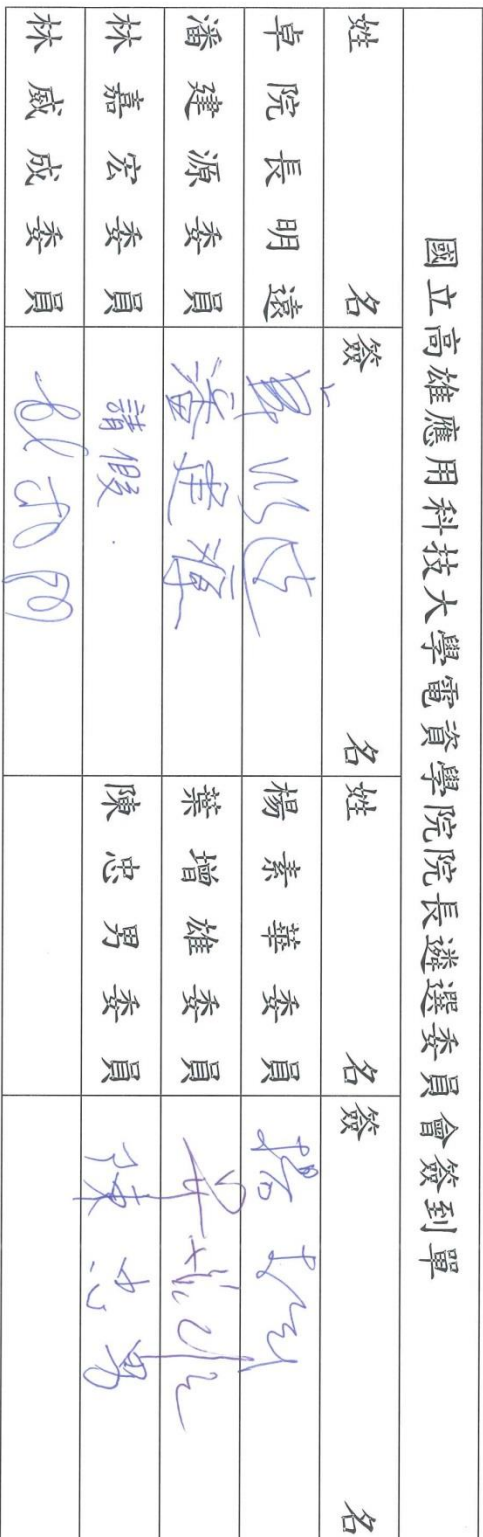 國立高雄應用科技大學電資學院院長遴選委員會簽到單
姓名 簽名 姓名 簽名
卓院長明遠 卓明遠 楊素華委員
潘建源委員 潘建源 葉增雄委員
林嘉宏委員 請假. 陳忠男委員 陳忠男
林威成委員